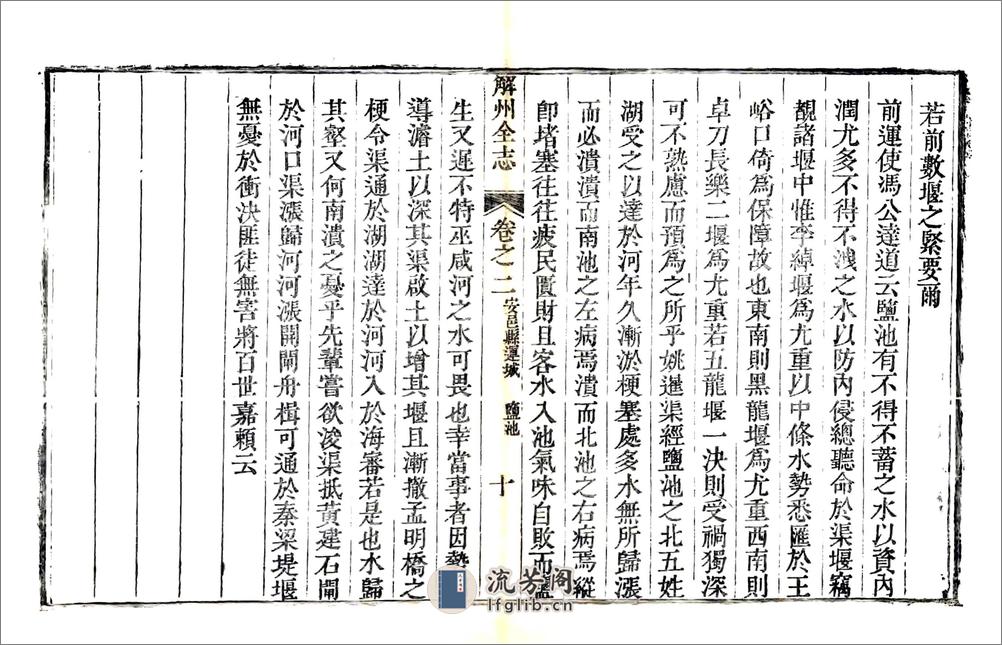 若前數堰之緊要爾
前運使馮公達道云鹽池有不得不蓄之水以資內
潤尤多不得不洩之水以防內侵總聽命於渠堰竊
覩諸堰中惟李綽堰爲尤重以中條水勢悉匯於王
峪口倚爲保障故也東南則黑龍堰爲尤重西南則
卓刀長樂二堰爲尤重若五龍堰一決則受禍獨深
可不熟慮而預爲之所乎姚暹渠經鹽池之北五姓
湖受之以達於河年久漸淤梗塞處多水無所歸漲
而必潰潰而南池之左病焉潰而北池之右病焉縱
卽堵塞往往疲民匱財且客水入池氣味自敗而鹽
解州全志
卷之二
安邑縣運城
鹽池
十
生又遲不特巫咸河之水可畏也幸當事者因勢
導濬土以深其渠啟土以增其堰且漸撤孟明橋之
梗令渠通於湖湖達於河河入於海審若是也水歸
其壑又何南潰之憂乎先輩嘗欲浚渠抵黃建石閘
於河口渠漲歸河河漲閉閘舟楫可通於秦梁堤堰
無憂於衝決匪徒無害將百世嘉賴云
流芳阁
lfglib.cn